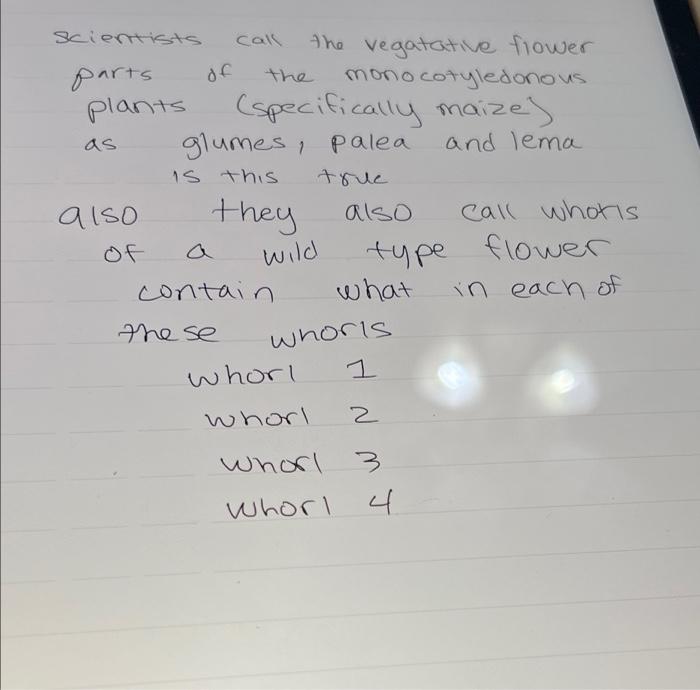 scientists call the vegatative flower
parts of the monocotyledonous
plants (specifically maize)
as glumes, palea and lema
is this true
also they also call whorls
of a wild type flower
contain what in each of
these whorls
whorl 1
whorl 2
whorl 3
whorl 4